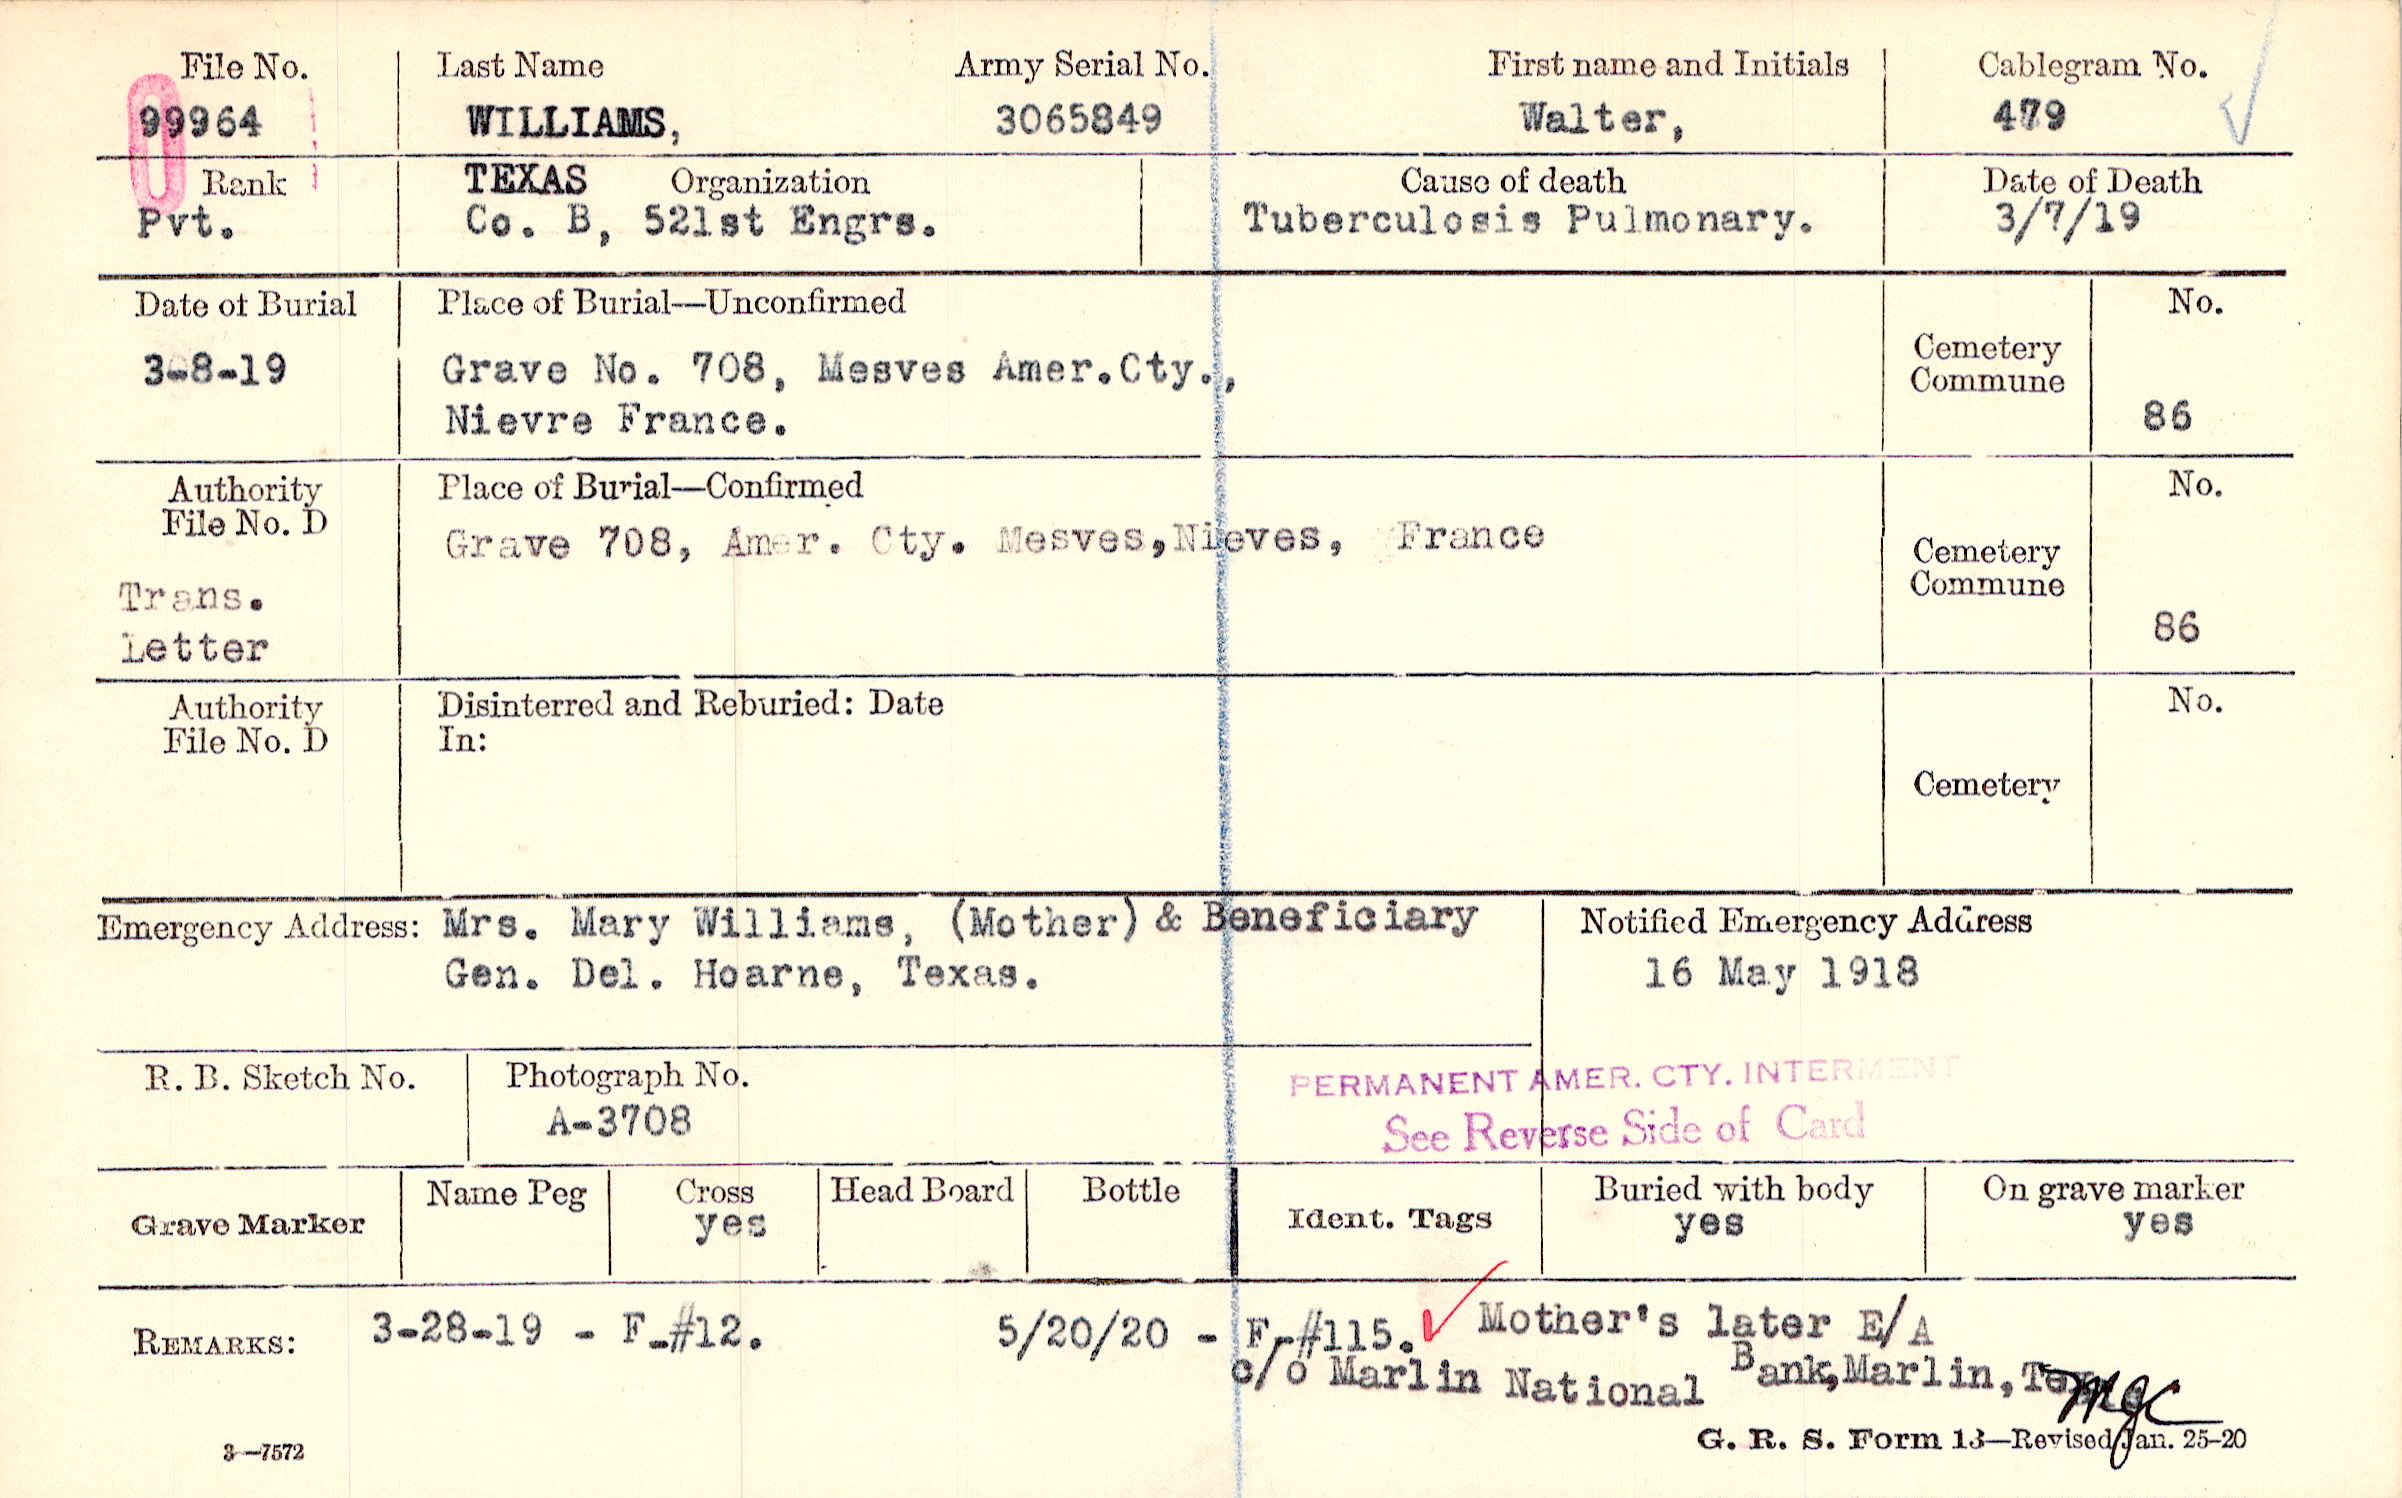 File No. Last Name Army Serial No. First name and Initials Cablegram No.
99964 WILLIAMS, 3065849 Walter, 479
Rank TEXAS Organization Cause of death Date of Death
Pvt. Co. B, 521st Engrs. Tuberculosis Pulmonary. 3/7/19
Date of Burial Place of Burial—Unconfirmed No.
3-8-19 Grave No. 708, Mesves Amer.Cty., Cemetery Commune
Nievre France. 86
Authority File No. D Place of Burial—Confirmed No.
Grave 708, Amer. Cty. Mesves,Nieves, France Cemetery Commune
Trans.
Letter 86
Authority File No. D Disinterred and Reburied: Date No.
In:
Cemetery
Emergency Address: Mrs. Mary Williams, (Mother) & Beneficiary Notified Emergency Address
Gen. Del. Hoarne, Texas. 16 May 1918
R. B. Sketch No. Photograph No. PERMANENT AMER. CTY. INTERMENT
A-3708 See Reverse Side of Card
Grave Marker Name Peg Cross Head Board Bottle Ident. Tags Buried with body On grave marker
yes yes yes
REMARKS: 3-28-19 - F-#12. 5/20/20 - F-#115. Mother's later E/A
c/o Marlin National Bank,Marlin,
MGC
3—7572 G. R. S. Form 13—Revised Jan. 25-20